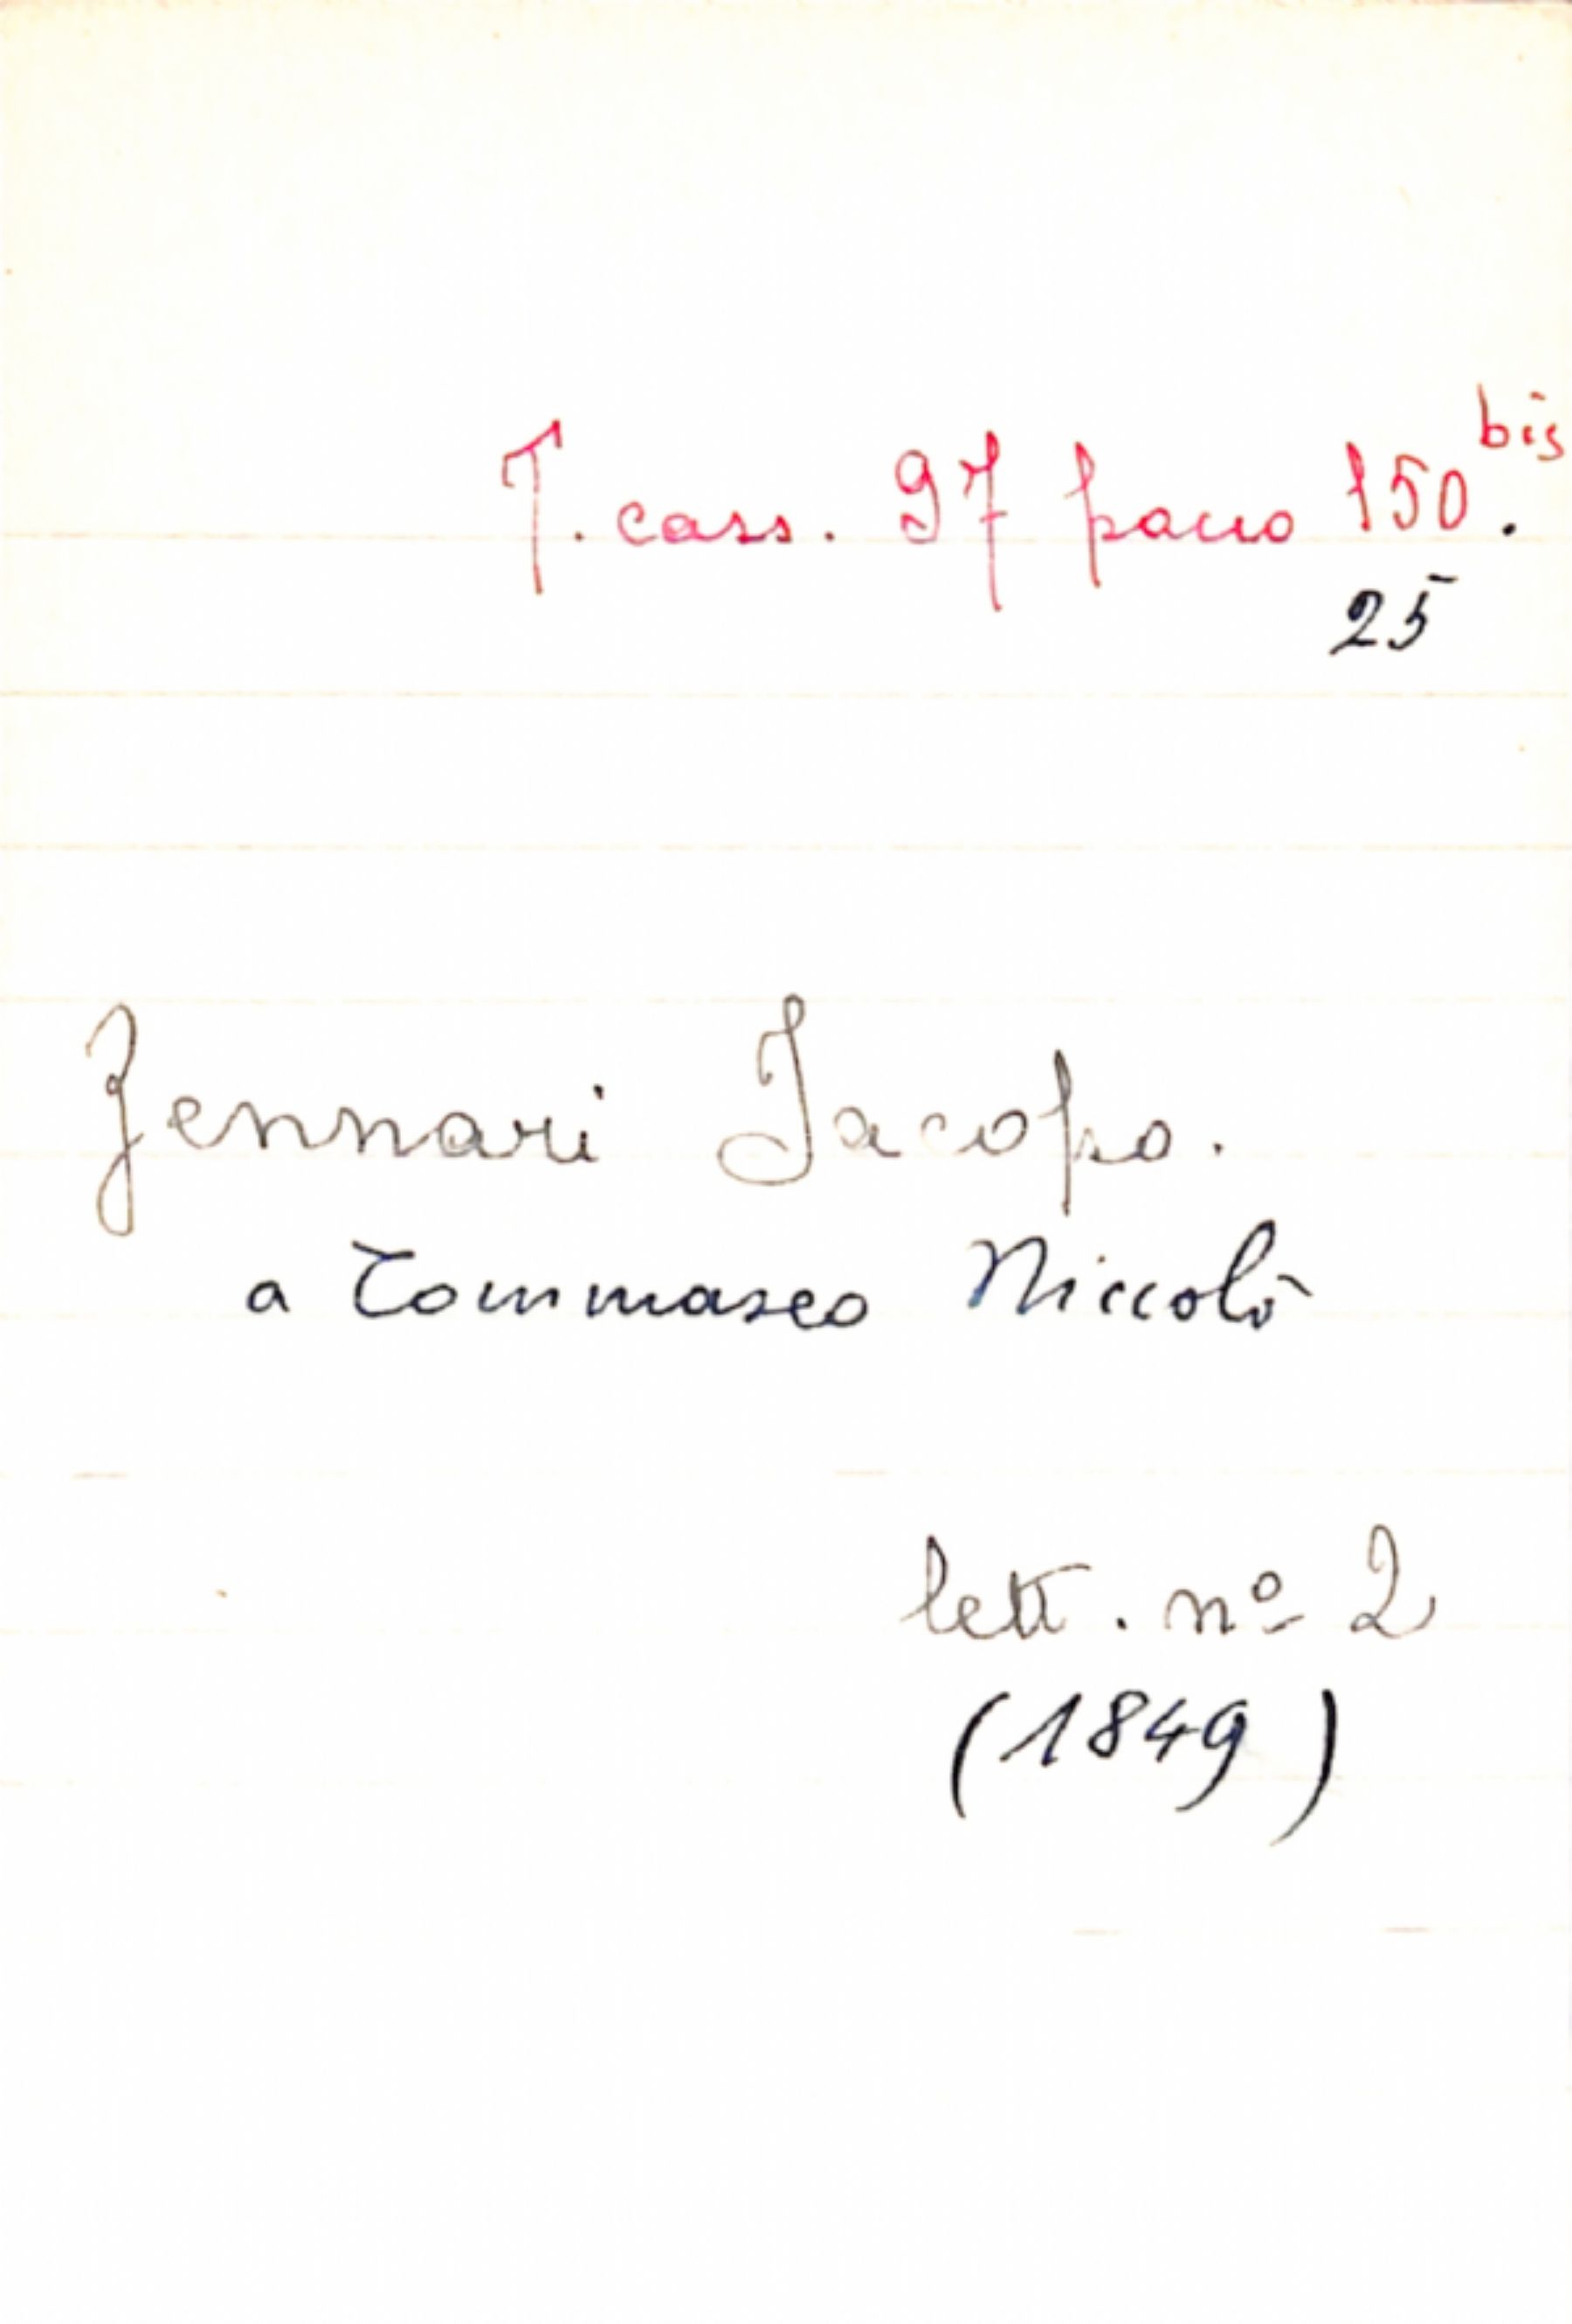 T. cass. 97 pacco 150 bis.
25
Zennari Jacopo.
a Tommaseo Niccolò
lett. nº 2
(1849)